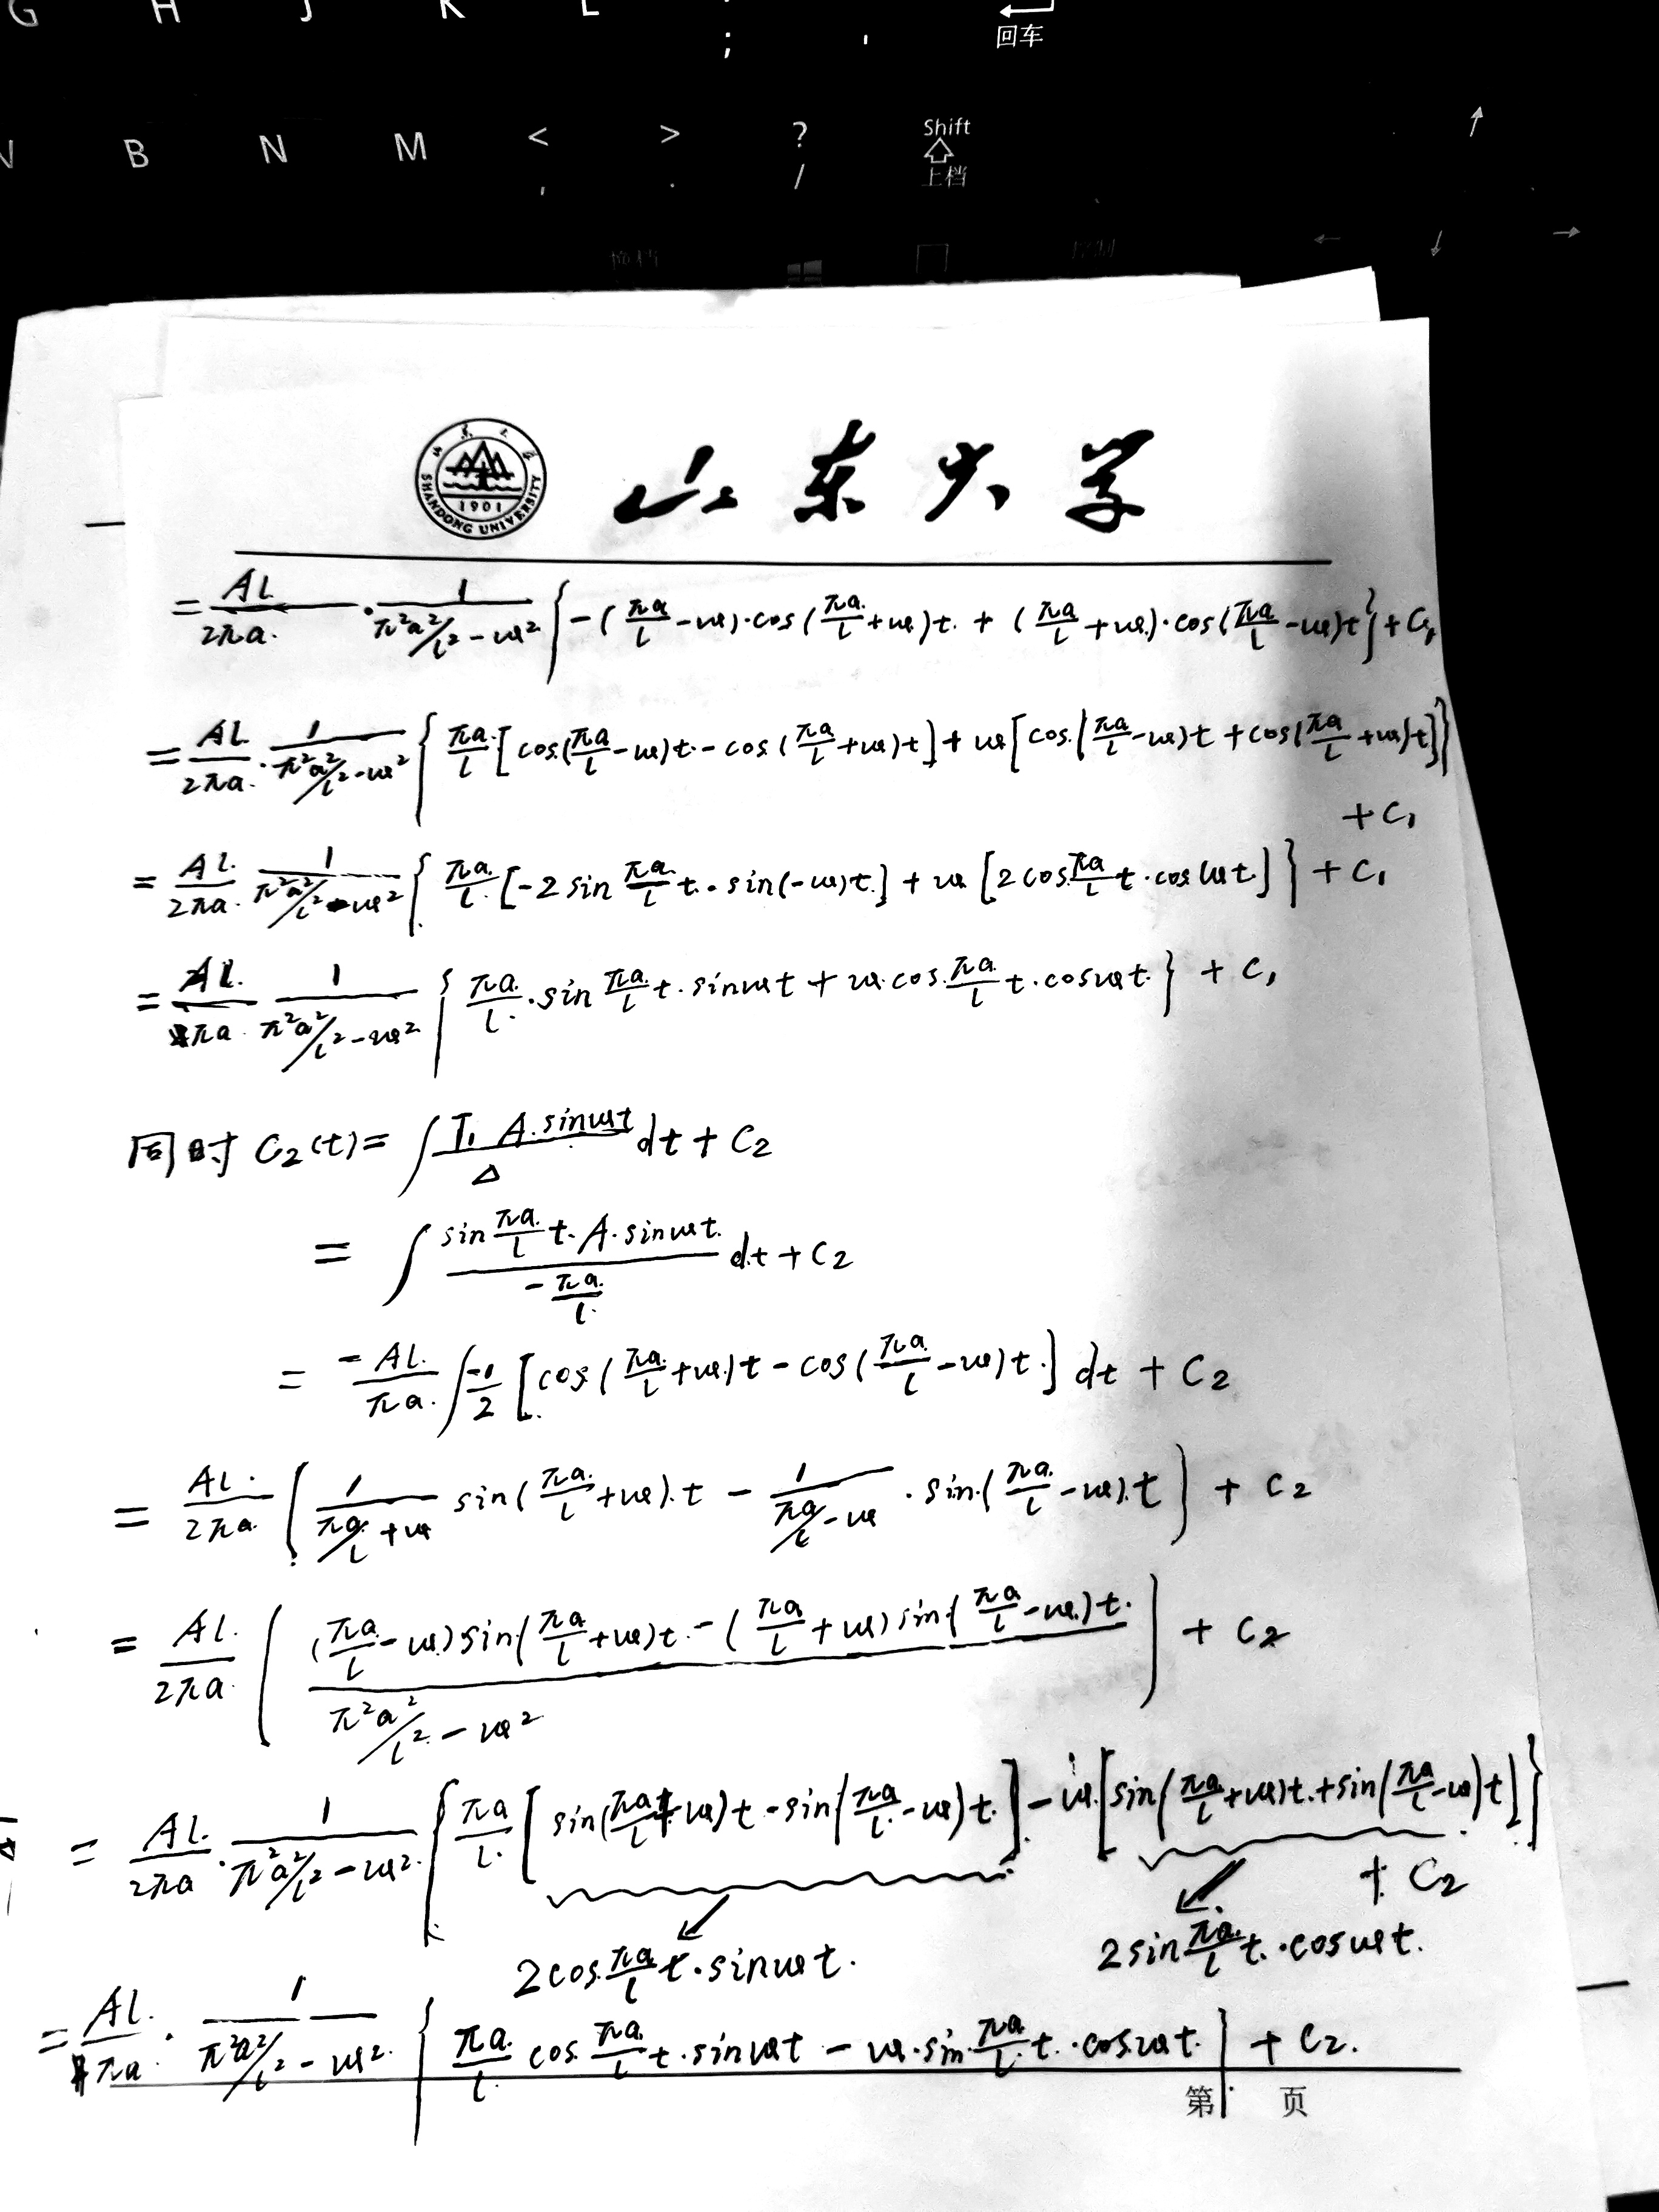 G H J K L ; ' 回车
V B N M < , > . ? / Shift 上档
SHANDONG UNIVERSITY 1901 山东大学
= AL/2πa · 1/(π²a²/l² - ω²) { -(πa/l - ω)·cos(πa/l + ω)t + (πa/l + ω)·cos(πa/l - ω)t } + C₁
= AL/2πa · 1/(π²a²/l² - ω²) { πa/l [cos(πa/l - ω)t - cos(πa/l + ω)t] + ω[cos(πa/l - ω)t + cos(πa/l + ω)t] }
+ C₁
= AL/2πa · 1/(π²a²/l² - ω²) { πa/l [-2 sin πa/l t · sin(-ω)t] + ω [2 cos πa/l t · cos ωt] } + C₁
= AL/πa · 1/(π²a²/l² - ω²) { πa/l · sin πa/l t · sin ωt + ω · cos πa/l t · cos ωt } + C₁
同时 C₂(t) = ∫ T₁ A·sinωt/Δ dt + C₂
= ∫ (sin πa/l t · A · sinωt)/(-πa/l) dt + C₂
= -AL/πa ∫ -1/2 [cos(πa/l + ω)t - cos(πa/l - ω)t] dt + C₂
= AL/2πa ( 1/(πa/l + ω) sin(πa/l + ω)·t - 1/(πa/l - ω) · sin(πa/l - ω)·t ) + C₂
= AL/2πa ( ((πa/l - ω) sin(πa/l + ω)t - (πa/l + ω) sin(πa/l - ω)t)/(π²a²/l² - ω²) ) + C₂
= AL/2πa · 1/(π²a²/l² - ω²) { πa/l [sin(πa/l + ω)t - sin(πa/l - ω)t] - ω[sin(πa/l + ω)t + sin(πa/l - ω)t] }
+ C₂
2cos πa/l t · sin ωt. 2sin πa/l t · cos ωt.
= AL/πa · 1/(π²a²/l² - ω²) { πa/l cos πa/l t · sin ωt - ω · sin πa/l t · cos ωt } + C₂.
第 页